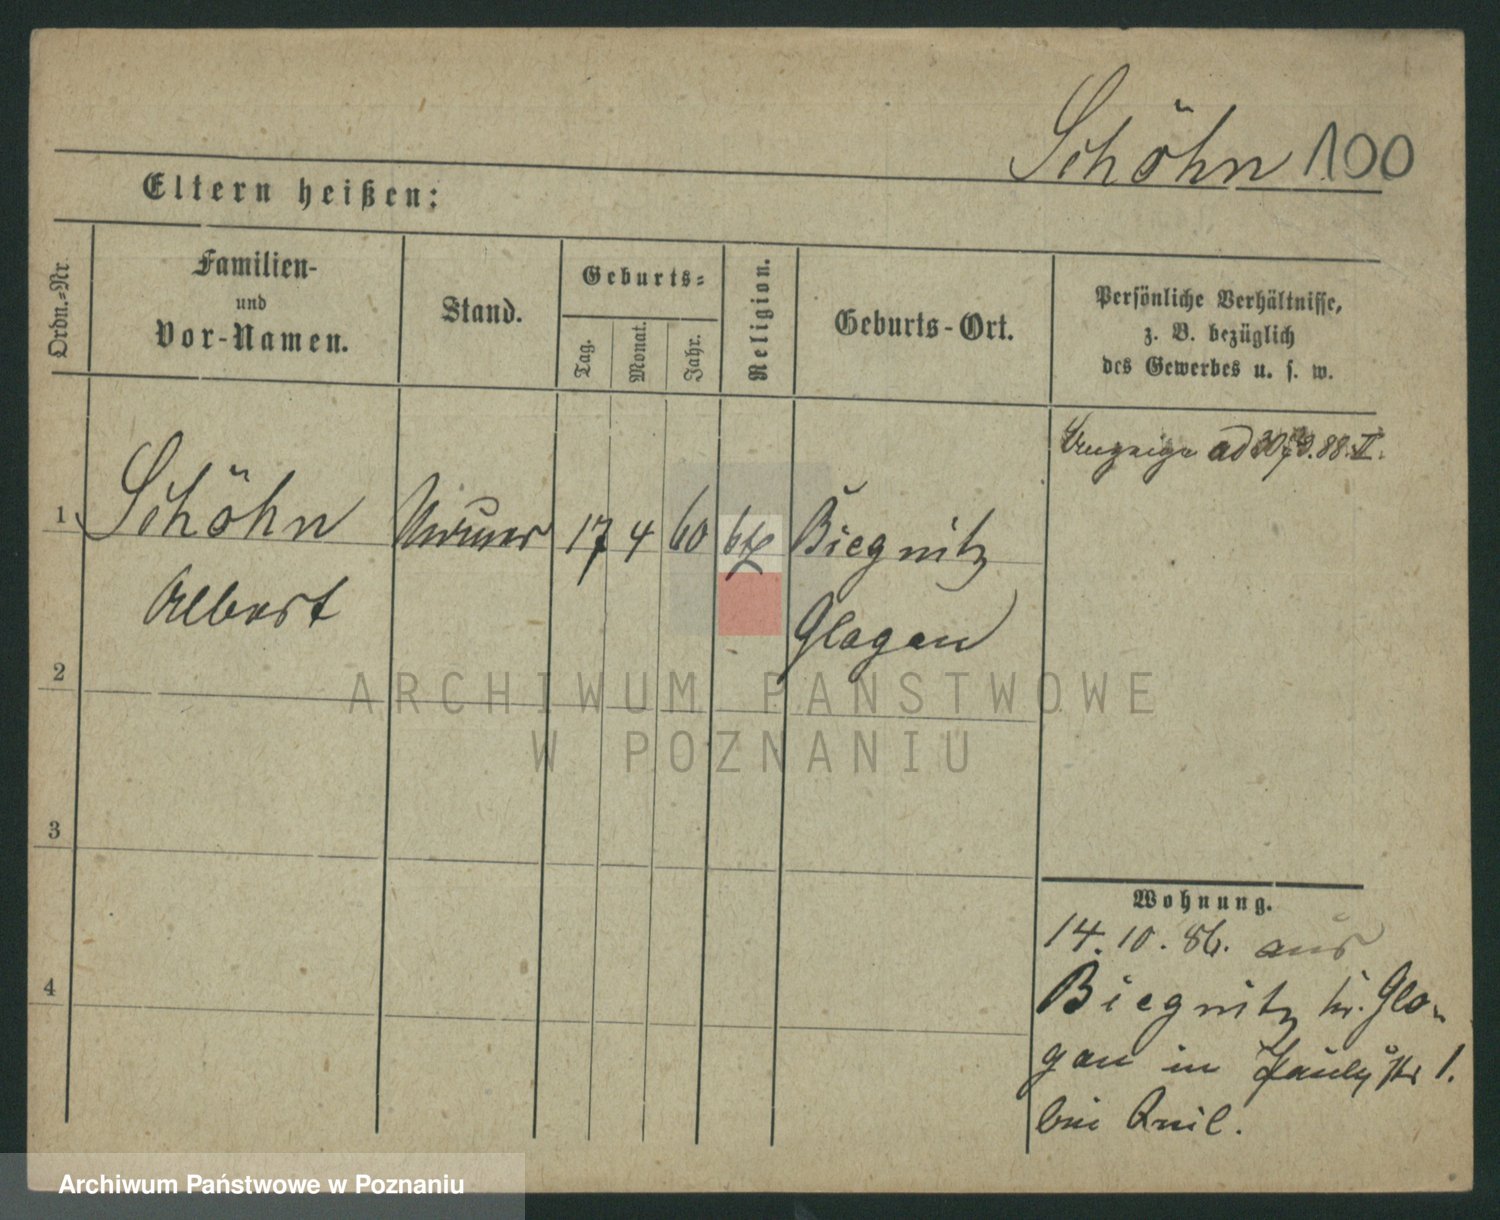 Schöhn 100
Eltern heißen:
Ordn.-Nr.
Familien-
und
Vor-Namen.
Stand.
Geburts-
Tag.
Monat.
Jahr.
Religion.
Geburts-Ort.
Persönliche Verhältnisse,
z. B. bezüglich
des Gewerbes u. s. w.
Anzeige ad 88.II.
1 Schöhn 17 4 60 Biegnitz
Albert Glogau
2
3
4
ARCHIWUM PAŃSTWOWE
W POZNANIU
Wohnung.
14.10.86. aus
Biegnitz kr. Glo-
gau in 1.
bei
Archiwum Państwowe w Poznaniu